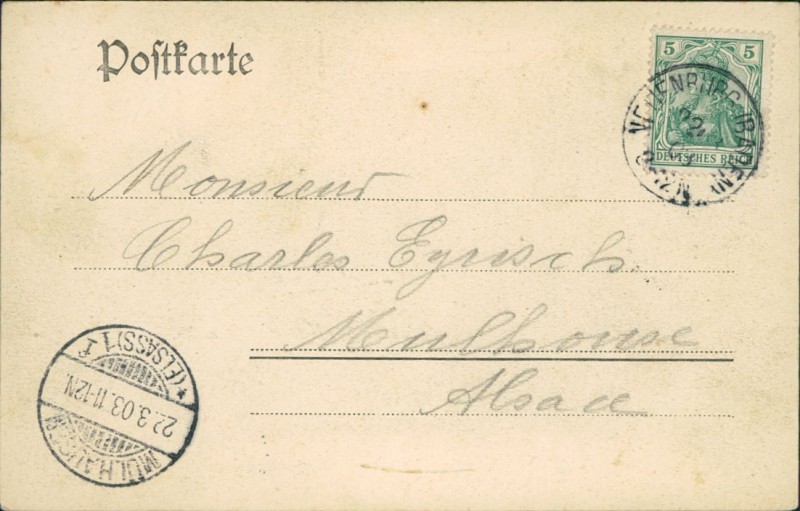 Postkarte
5 5
DEUTSCHES REICH
NEUENBURG (BADEN)
22
Monsieur
Charles Eyrisch
Mulhouse
Alsace
*(ELSASS) 1 r
22.3.03.11-12N.
MÜLHAUSEN